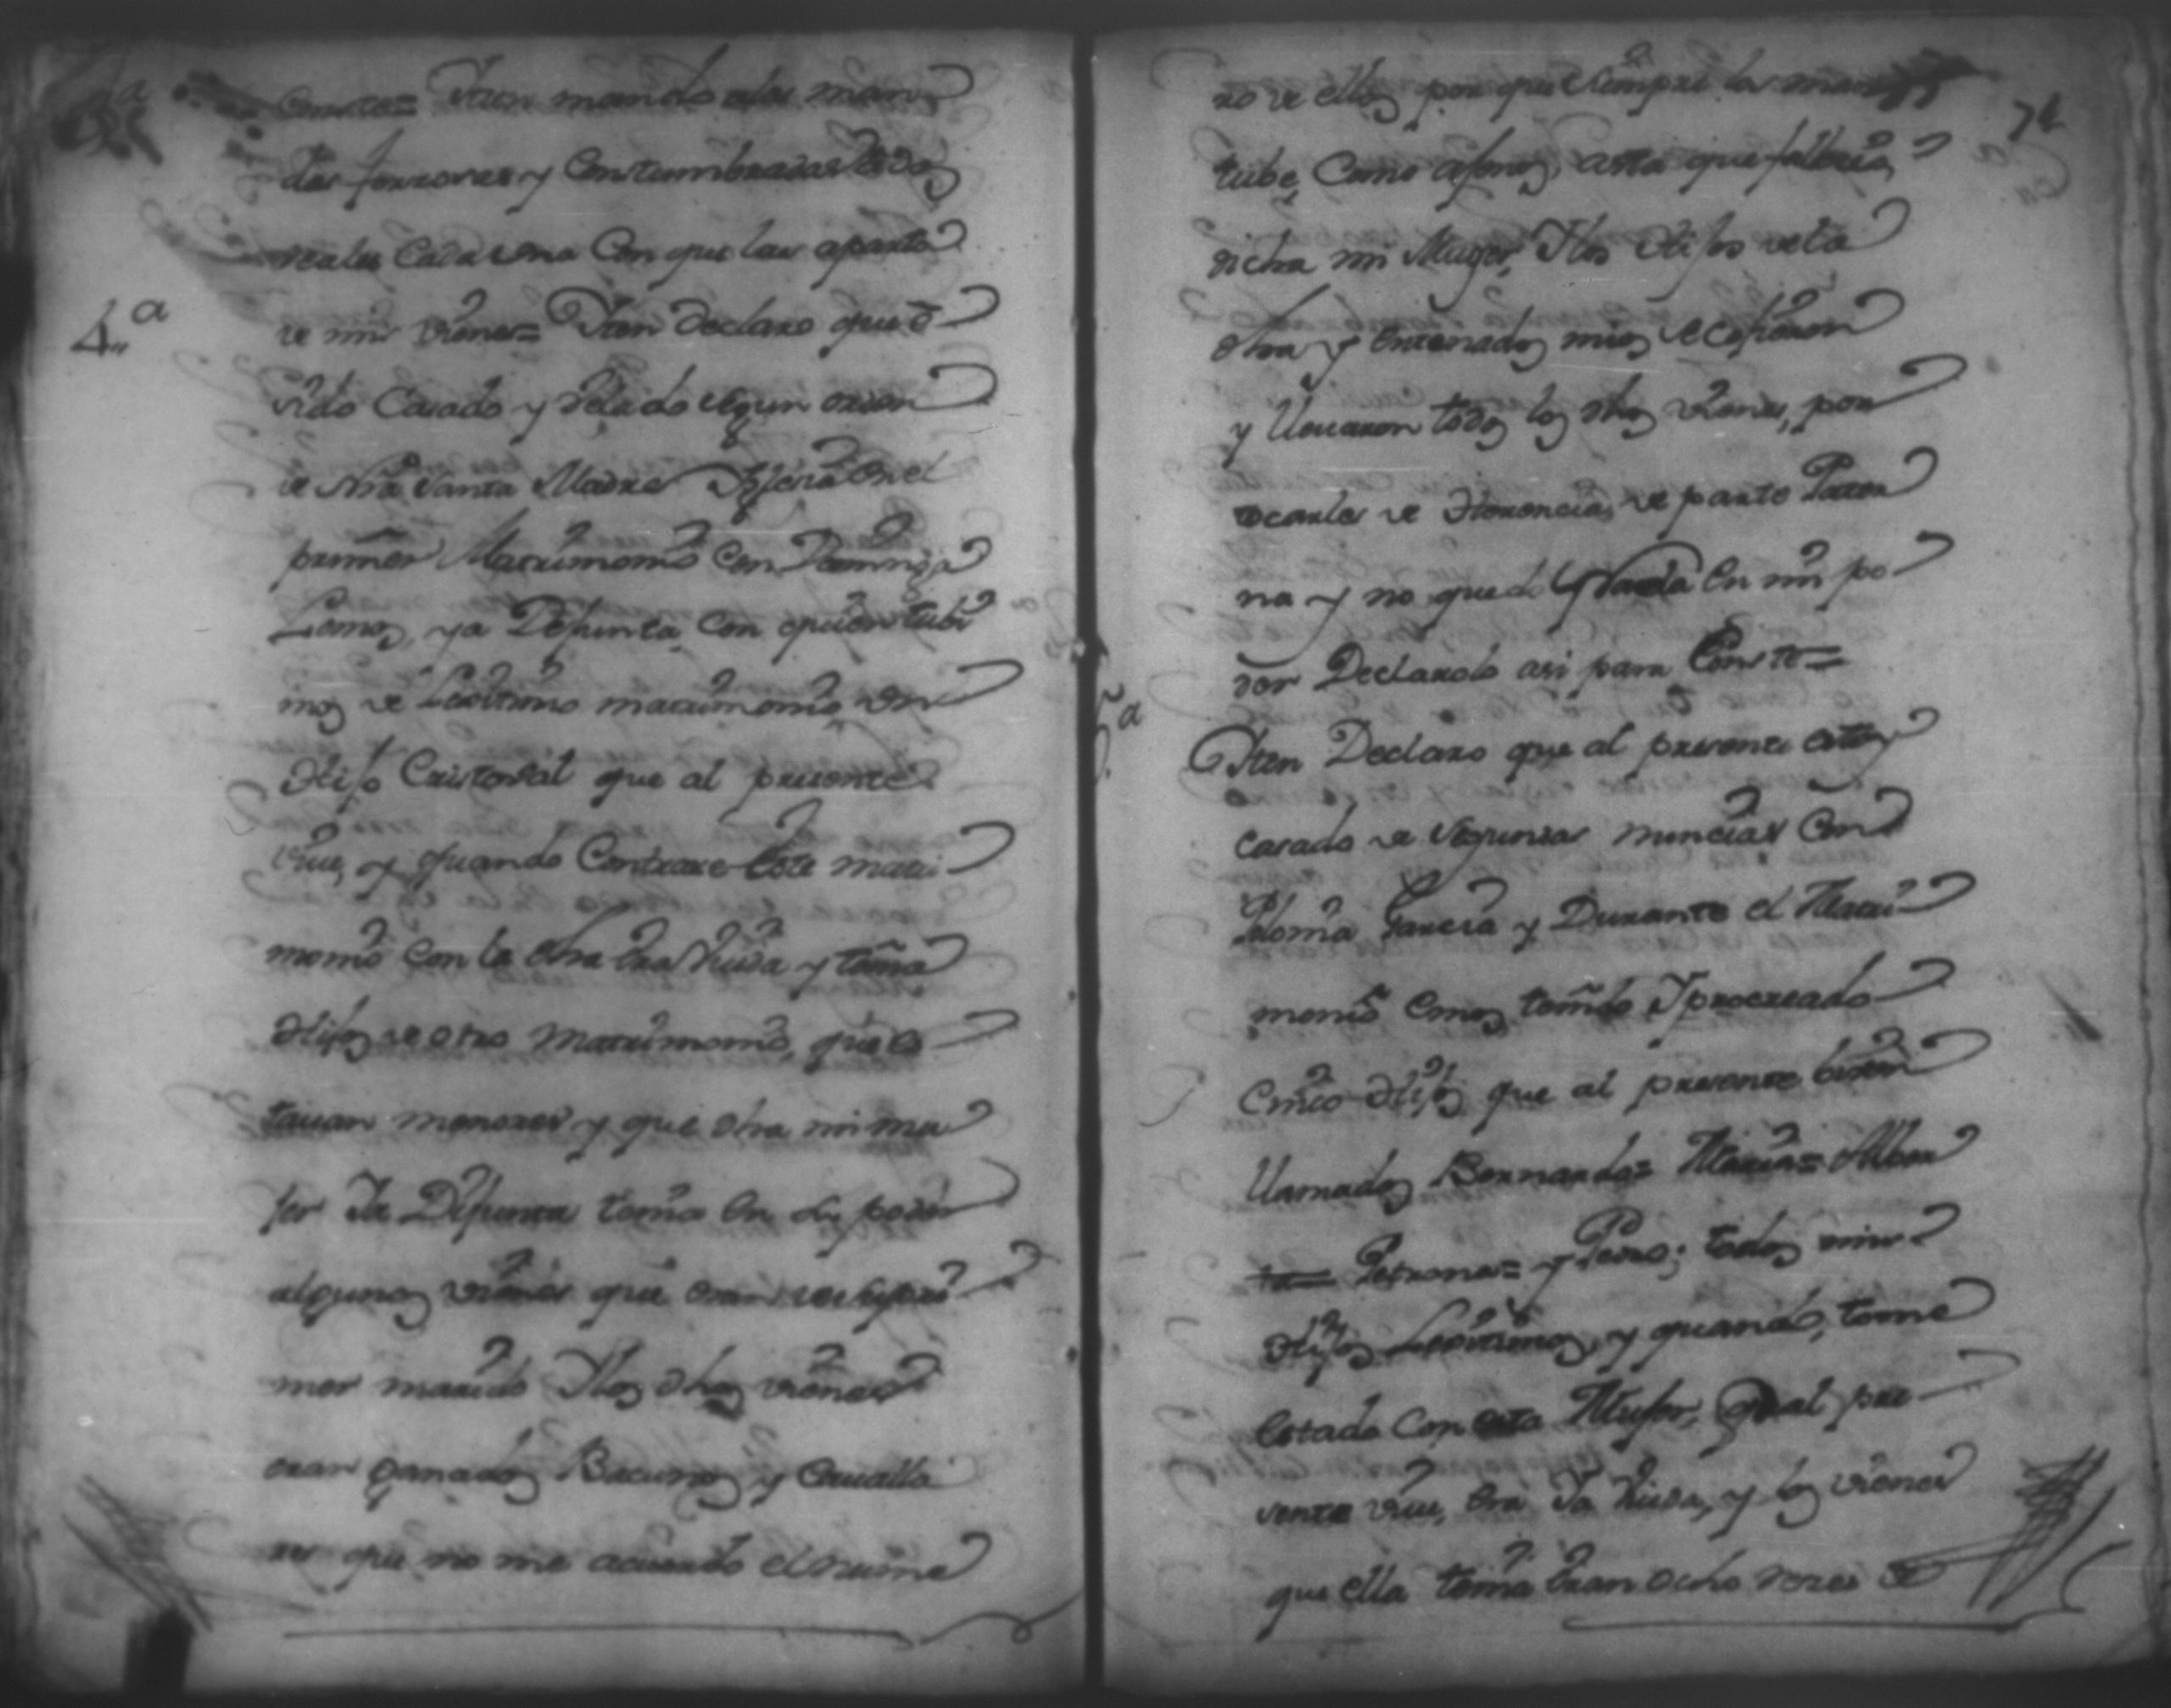 Conste= Iten mando a las man
das forzosas y Costumbradas dos
reales Cada vna Con que las aparto
4.a
de mis vienes= Iten Declaro que e
sido Casado y Velado segun orden
de Nra Santa Madre Iglecia en el
primer Matrimonio Con Dominga
Lemos, ya Defunta, Con quien tubi
mos de Lexitimo matrimonio vn
Hijo Cristoval que al presente
viue, y quando Contraxe este matri
monio con la dha era Viuda y tenia
Hijos de otro matrimonio, que es
tauan menores y que dha mi mu
jer Ya Defunta tenia en su poder
algunos vienes que eran de su pri
mer marido Y los dhos vienes
eran ganados Bacunos y Caualla
res que no me acuerdo el nume
ro de ellos por que siempre los man
74
tube, Como agenos, asta que fallecio,
dicha mi Muger, Y los Hijos de la
dha y entenados mios recojieron
y lleuaron todos los dhos vienes, por
tocarles de Herencia, de parte Pater
na y no quedo Nada en mi po
der Declarolo asi para Conste=
5.a
Iten Declaro que al presente estoy
casado de segundas nuncias Con
Paloma Garcia y Durante el Matri
monio emos tenido Y procreado
Cinco Hijos que al presente biben
llamados Bernardo= Maria= Alber
ta= Petrona= y Pedro; todos mis
Hijos Lexitimos, y quando, tome
estado Con esta Mujer, qe al pre
sente viue, era Ya Viuda, y los vienes
que ella tenia eran ocho rezes de